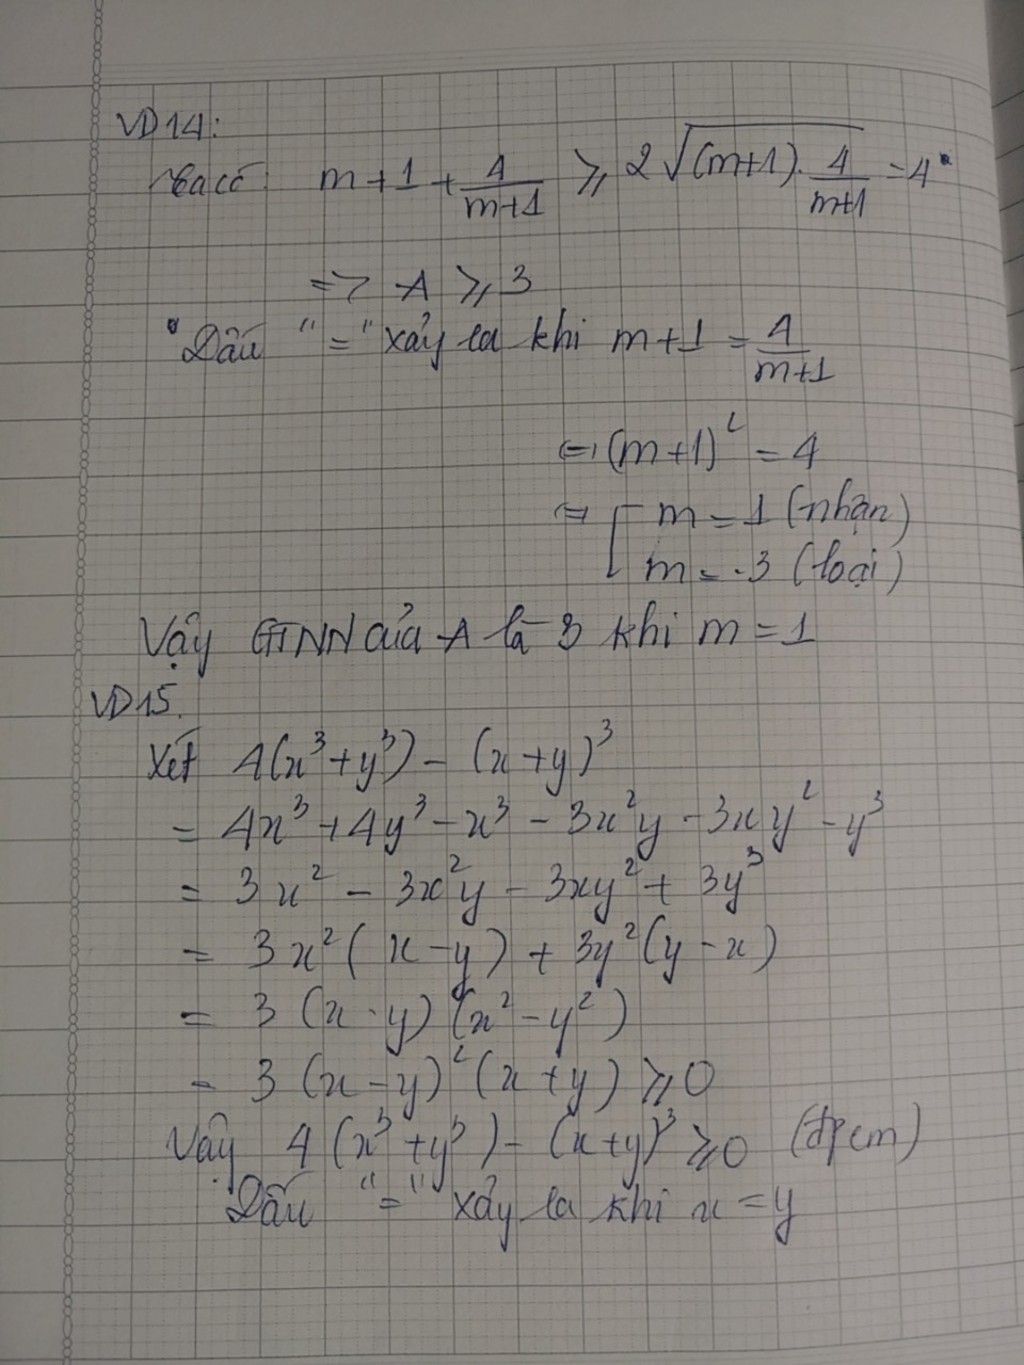 VD14:
Ta có m+1 + 4/(m+1) ≥ 2√((m+1).4/(m+1)) = 4
=> A ≥ 3
Dấu "=" xảy ra khi m+1 = 4/(m+1)
⇔ (m+1)² = 4
⇔ [ m = 1 (nhận)
m = -3 (loại)
Vậy GTNN của A là 3 khi m = 1
VD15.
Xét 4(x³+y³) - (x+y)³
= 4x³ + 4y³ - x³ - 3x²y - 3xy² - y³
= 3x² - 3x²y - 3xy² + 3y³
= 3x²(x-y) + 3y²(y-x)
= 3(x-y)(x²-y²)
= 3(x-y)²(x+y) ≥ 0
Vậy 4(x³+y³) - (x+y)³ ≥ 0 (đpcm)
Dấu "=" xảy ra khi x = y